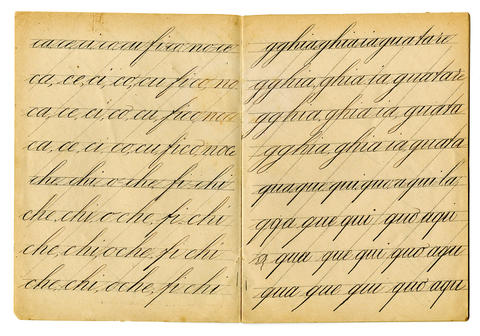 ca ce ci co cu fico noce
ca, ce, ci, co, cu fico, no
ca, ce, ci, co, cu, fico noc
ca, ce, ci, co, cu, fico noce
che chi o che fi chi
che, chi o che, fi chi
che, chi, o che, fi chi
che, chi, o che, fi chi
g ghia ghia ia gua tare
g ghia, ghia ia, guatare
g ghia, ghia ia, guata
g ghia, ghia ia guata
qua que qui quo a qui la,
que qui quo aqui
qua que qui quo aqu
qua que qui quo aqu